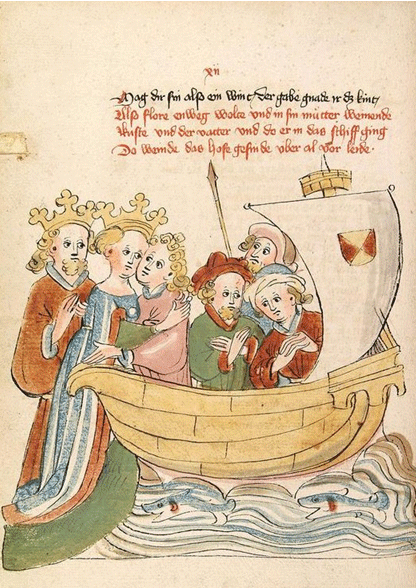 xij
Mag dir sin also ein wint der gabe gnade ir dz kint
Also flore enweg wolte vnd in sin můtter weinende
kuste vnd der vatter vnd do er in das schiff ging
Do weinde das hofe gesinde vber al vor leide.